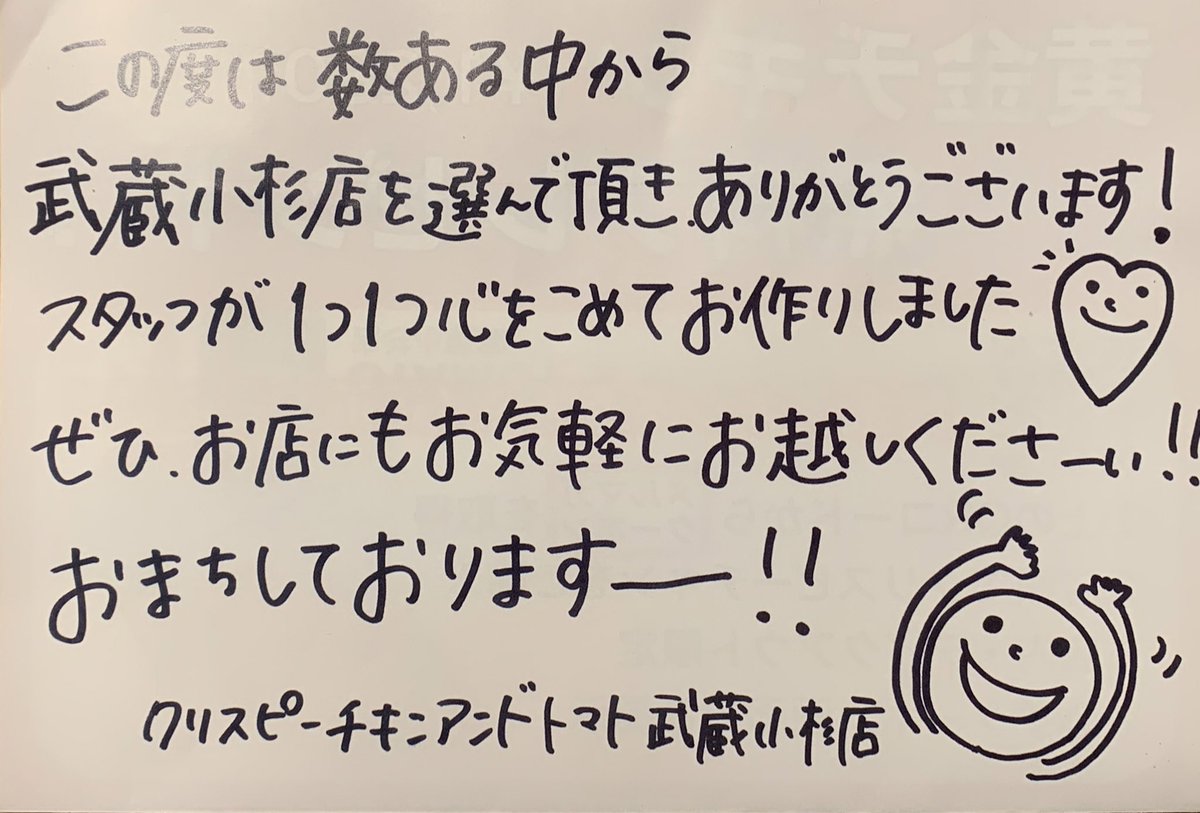 この度は数ある中から
武蔵小杉店を選んで頂き、ありがとうございます!
スタッフが1つ1つ心をこめてお作りしました
ぜひ、お店にもお気軽にお越しくださーい!!
おまちしておりますー!!
クリスピーチキンアンドトマト武蔵小杉店